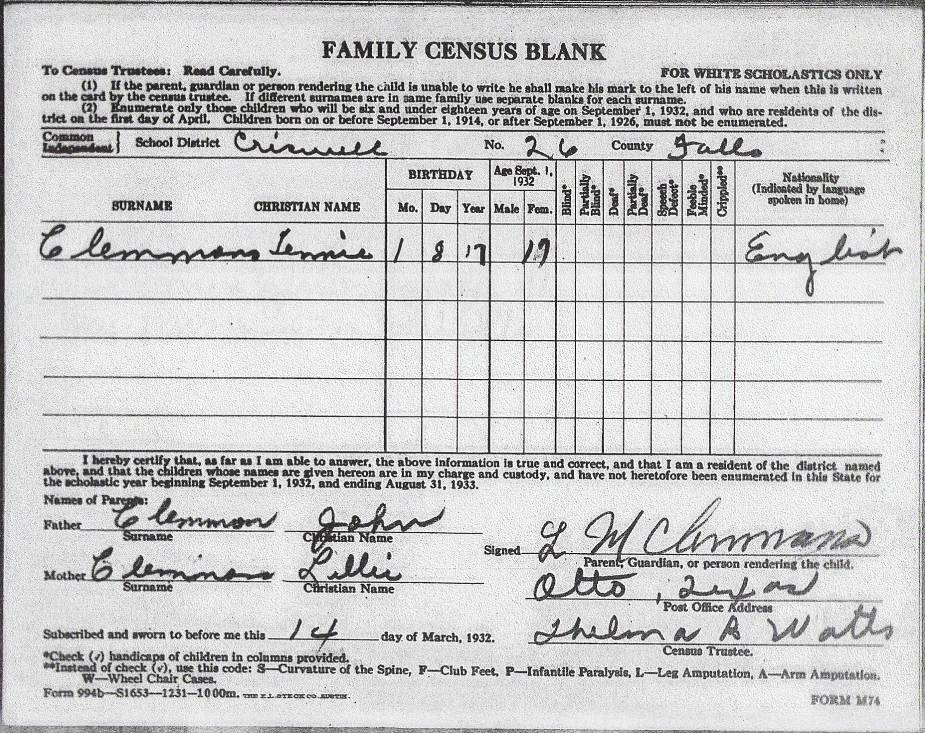 FAMILY CENSUS BLANK
To Census Trustees: Read Carefully. FOR WHITE SCHOLASTICS ONLY
(1) If the parent, guardian or person rendering the child is unable to write he shall make his mark to the left of his name when this is written
on the card by the census trustee. If different surnames are in same family use separate blanks for each surname.
(2) Enumerate only those children who will be six and under eighteen years of age on September 1, 1932, and who are residents of the dis-
trict on the first day of April. Children born on or before September 1, 1914, or after September 1, 1926, must not be enumerated.
Common
Independent } School District Criswell No. 26 County Falls
SURNAME CHRISTIAN NAME BIRTHDAY Mo. Day Year Age Sept. 1, 1932 Male Fem. Blind* Partially Blind* Deaf* Partially Deaf* Speech Defect* Feeble Minded* Crippled** Nationality (Indicated by language spoken in home)
Clemmons 1 8 17 English
I hereby certify that, as far as I am able to answer, the above information is true and correct, and that I am a resident of the district named
above, and that the children whose names are given hereon are in my charge and custody, and have not heretofore been enumerated in this State for
the scholastic year beginning September 1, 1932, and ending August 31, 1933.
Names of Parents:
Father Clemmon John
Surname Christian Name
Signed L M Clemmons
Parent, Guardian, or person rendering the child.
Mother Clemmons Lillie
Surname Christian Name
Otto, Texas
Post Office Address
Subscribed and sworn to before me this 14 day of March, 1932. Thelma B Watts
Census Trustee.
*Check (√) handicaps of children in columns provided.
**Instead of check (√), use this code: S—Curvature of the Spine, F—Club Feet, P—Infantile Paralysis, L—Leg Amputation, A—Arm Amputation.
W—Wheel Chair Cases.
Form 994b—S1653—1231—100m. THE E.L. STECK CO. AUSTIN. FORM M74